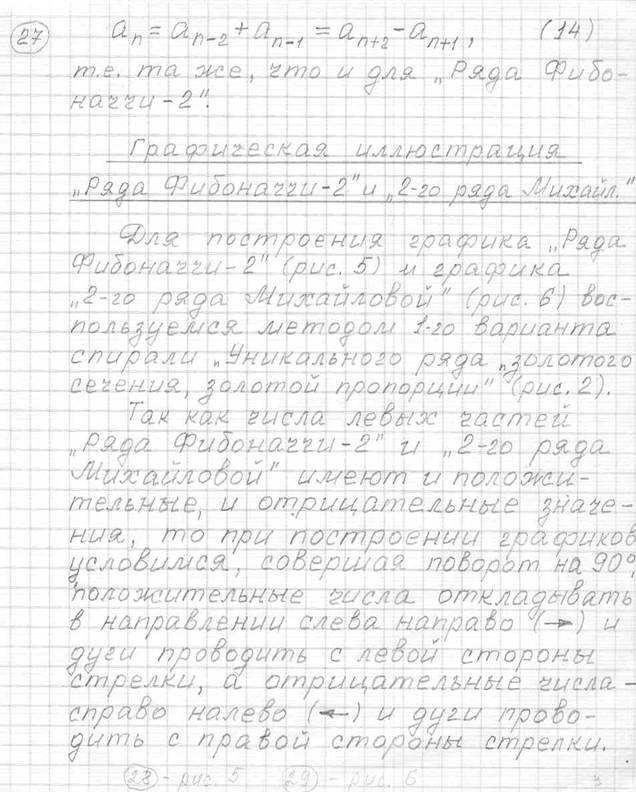 27 aₙ = aₙ₋₂ + aₙ₋₁ = aₙ₊₂ - aₙ₊₁, (14)
т.е. та же, что и для „Ряда Фибо-
наччи-2".
Графическая иллюстрация
„Ряда Фибоначчи-2" и „2-го ряда Михайл."
Для построения графика „Ряда
Фибоначчи-2" (рис. 5) и графика
„2-го ряда Михайловой" (рис. 6) вос-
пользуемся методом 1-го варианта
спирали „Уникального ряда „золотого
сечения, золотой пропорции" (рис. 2).
Так как числа левых частей
„Ряда Фибоначчи-2" и „2-го ряда
Михайловой" имеют и положи-
тельные, и отрицательные значе-
ния, то при построении графиков
условимся, совершая поворот на 90°,
положительные числа откладывать
в направлении слева направо (→) и
дуги проводить с левой стороны
стрелки, а отрицательные числа -
справо налево (←) и дуги прово-
дить с правой стороны стрелки.
28 - рис. 5 29 - рис. 6